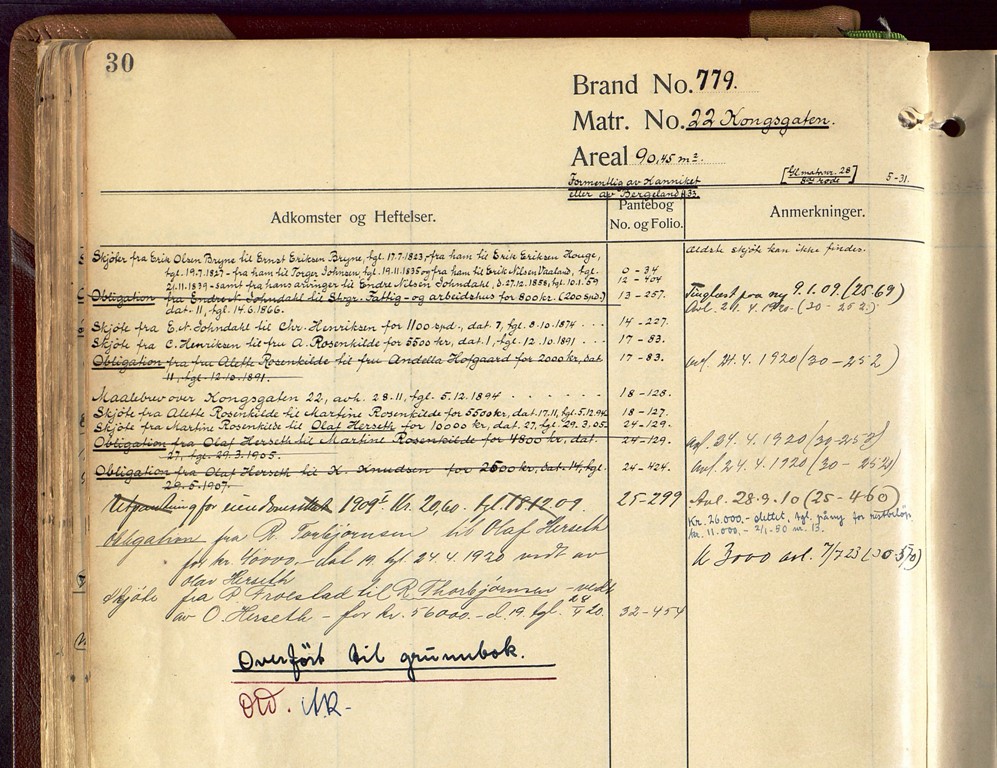 30
Brand No. 779.
Matr. No. 22 Kongsgaten.
Areal 90,45 m².
Formentlig av Kanniket
eller av Bergeland A33.
[Gl. matrnr. 28
rode] 5-31.
Adkomster og Heftelser.
Pantebog
No. og Folio.
Anmerkninger.
Ældste skjöte kan ikke findes.
Skjöter fra Erik Olsen Bryne til Ernst Eriksen Bryne, tgl. 17.7.1823, fra ham til Erik Eriksen Houge,
tgl. 19.7.1827 - fra ham til Torger Johnsen, tgl. 19.11.1835 og fra ham til Erik Nilsen Vaaland, tgl. 0 - 34.
21.11.1839 - samt fra hans arvinger til Endre Nilsen Johndahl, d. 27.12.1858, tgl. 10.1.59 12 - 404
Obligation fra Endre N. Johndahl til Skgr. Fattig- og arbeidshus for 800 kr. (200 spd.) 13 - 257. Tinglæst paa ny 9.1.09. (25-69)
dat. 11, tgl. 14.6.1866. Avl. 24.4.1920 (30-252)
Skjöte fra E. N. Johndahl til Chr. Henriksen for 1100 spd., dat. 7, tgl. 8.10.1874 . . . 14 - 227.
Skjöte fra C. Henriksen til fru A. Rosenkilde for 5500 kr, dat. 1, tgl. 12.10.1891 . . . 17 - 83.
Obligation fra fru Alette Rosenkilde til fru Andella Hofgaard for 2000 kr, dat 17 - 83. avl. 24.4.1920 (30-252)
11, tgl. 12.10.1891.
Maalebrev over Kongsgaten 22, avh. 28.11, tgl. 5.12.1894 . . . . . . 18 - 128.
Skjöte fra Alette Rosenkilde til Martine Rosenkilde for 5500 kr, dat. 17.11, tgl. 5.12.94 18 - 127.
Skjöte fra Martine Rosenkilde til Olaf Herseth for 10000 kr, dat. 27, tgl. 29.3.05. 24 - 129.
Obligation fra Olaf Herseth til Martine Rosenkilde for 4800 kr, dat. 24 - 129. avl. 24.4.1920 (30-252)
27, tgl. 29.3.1905.
Obligation fra Olaf Herseth til K. Knudsen for 2500 kr, dat. 14, tgl. 24 - 424. avl. 24.4.1920 (30-252)
29.5.1907.
Utpantning for eiendomsskat 1909 Kr. 20,60. tgl. 18.12.09. 25-299 Avl. 28.9.10 (25-460)
Kr. 26.000,- slettet, tgl. påny for restbeløp
Kr. 11.000,- 2/1-50 nr. 13.
Obligation fra R. Torbjörnsen til Olaf Herseth
for kr. 40000,- dat 19, tgl 24.4.1920 vedt av K 3000 avl. 7/7 23
Olav Herseth
Skjöte fra P. Froestad til R. Thorbjørnsen - vedt
av O. Herseth - for kr. 56000.- d. 19. tgl. 24/4 20. 32-454
Overført til grunnbok.